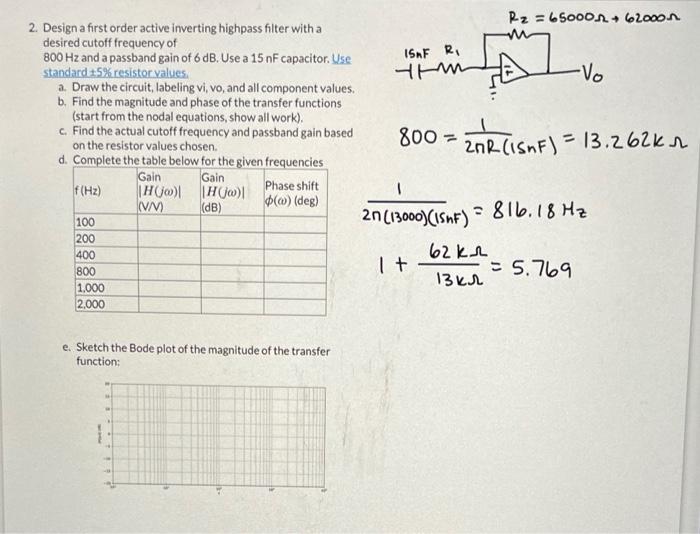 2. Design a first order active inverting highpass filter with a
desired cutoff frequency of
800 Hz and a passband gain of 6 dB. Use a 15 nF capacitor. Use
standard ±5% resistor values.
a. Draw the circuit, labeling vi, vo, and all component values.
b. Find the magnitude and phase of the transfer functions
(start from the nodal equations, show all work).
c. Find the actual cutoff frequency and passband gain based
on the resistor values chosen.
d. Complete the table below for the given frequencies
f (Hz)
Gain |H(jω)| (V/V)
Gain |H(jω)| (dB)
Phase shift ϕ(ω) (deg)
100
200
400
800
1,000
2,000
e. Sketch the Bode plot of the magnitude of the transfer
function:
R2 = 65000Ω + 62000Ω
15nF R1
- +
Vo
800 = 1 / 2πR(15nF) = 13.262kΩ
1 / 2π(13000)(15nF) = 816.18 Hz
1 + 62kΩ / 13kΩ = 5.769